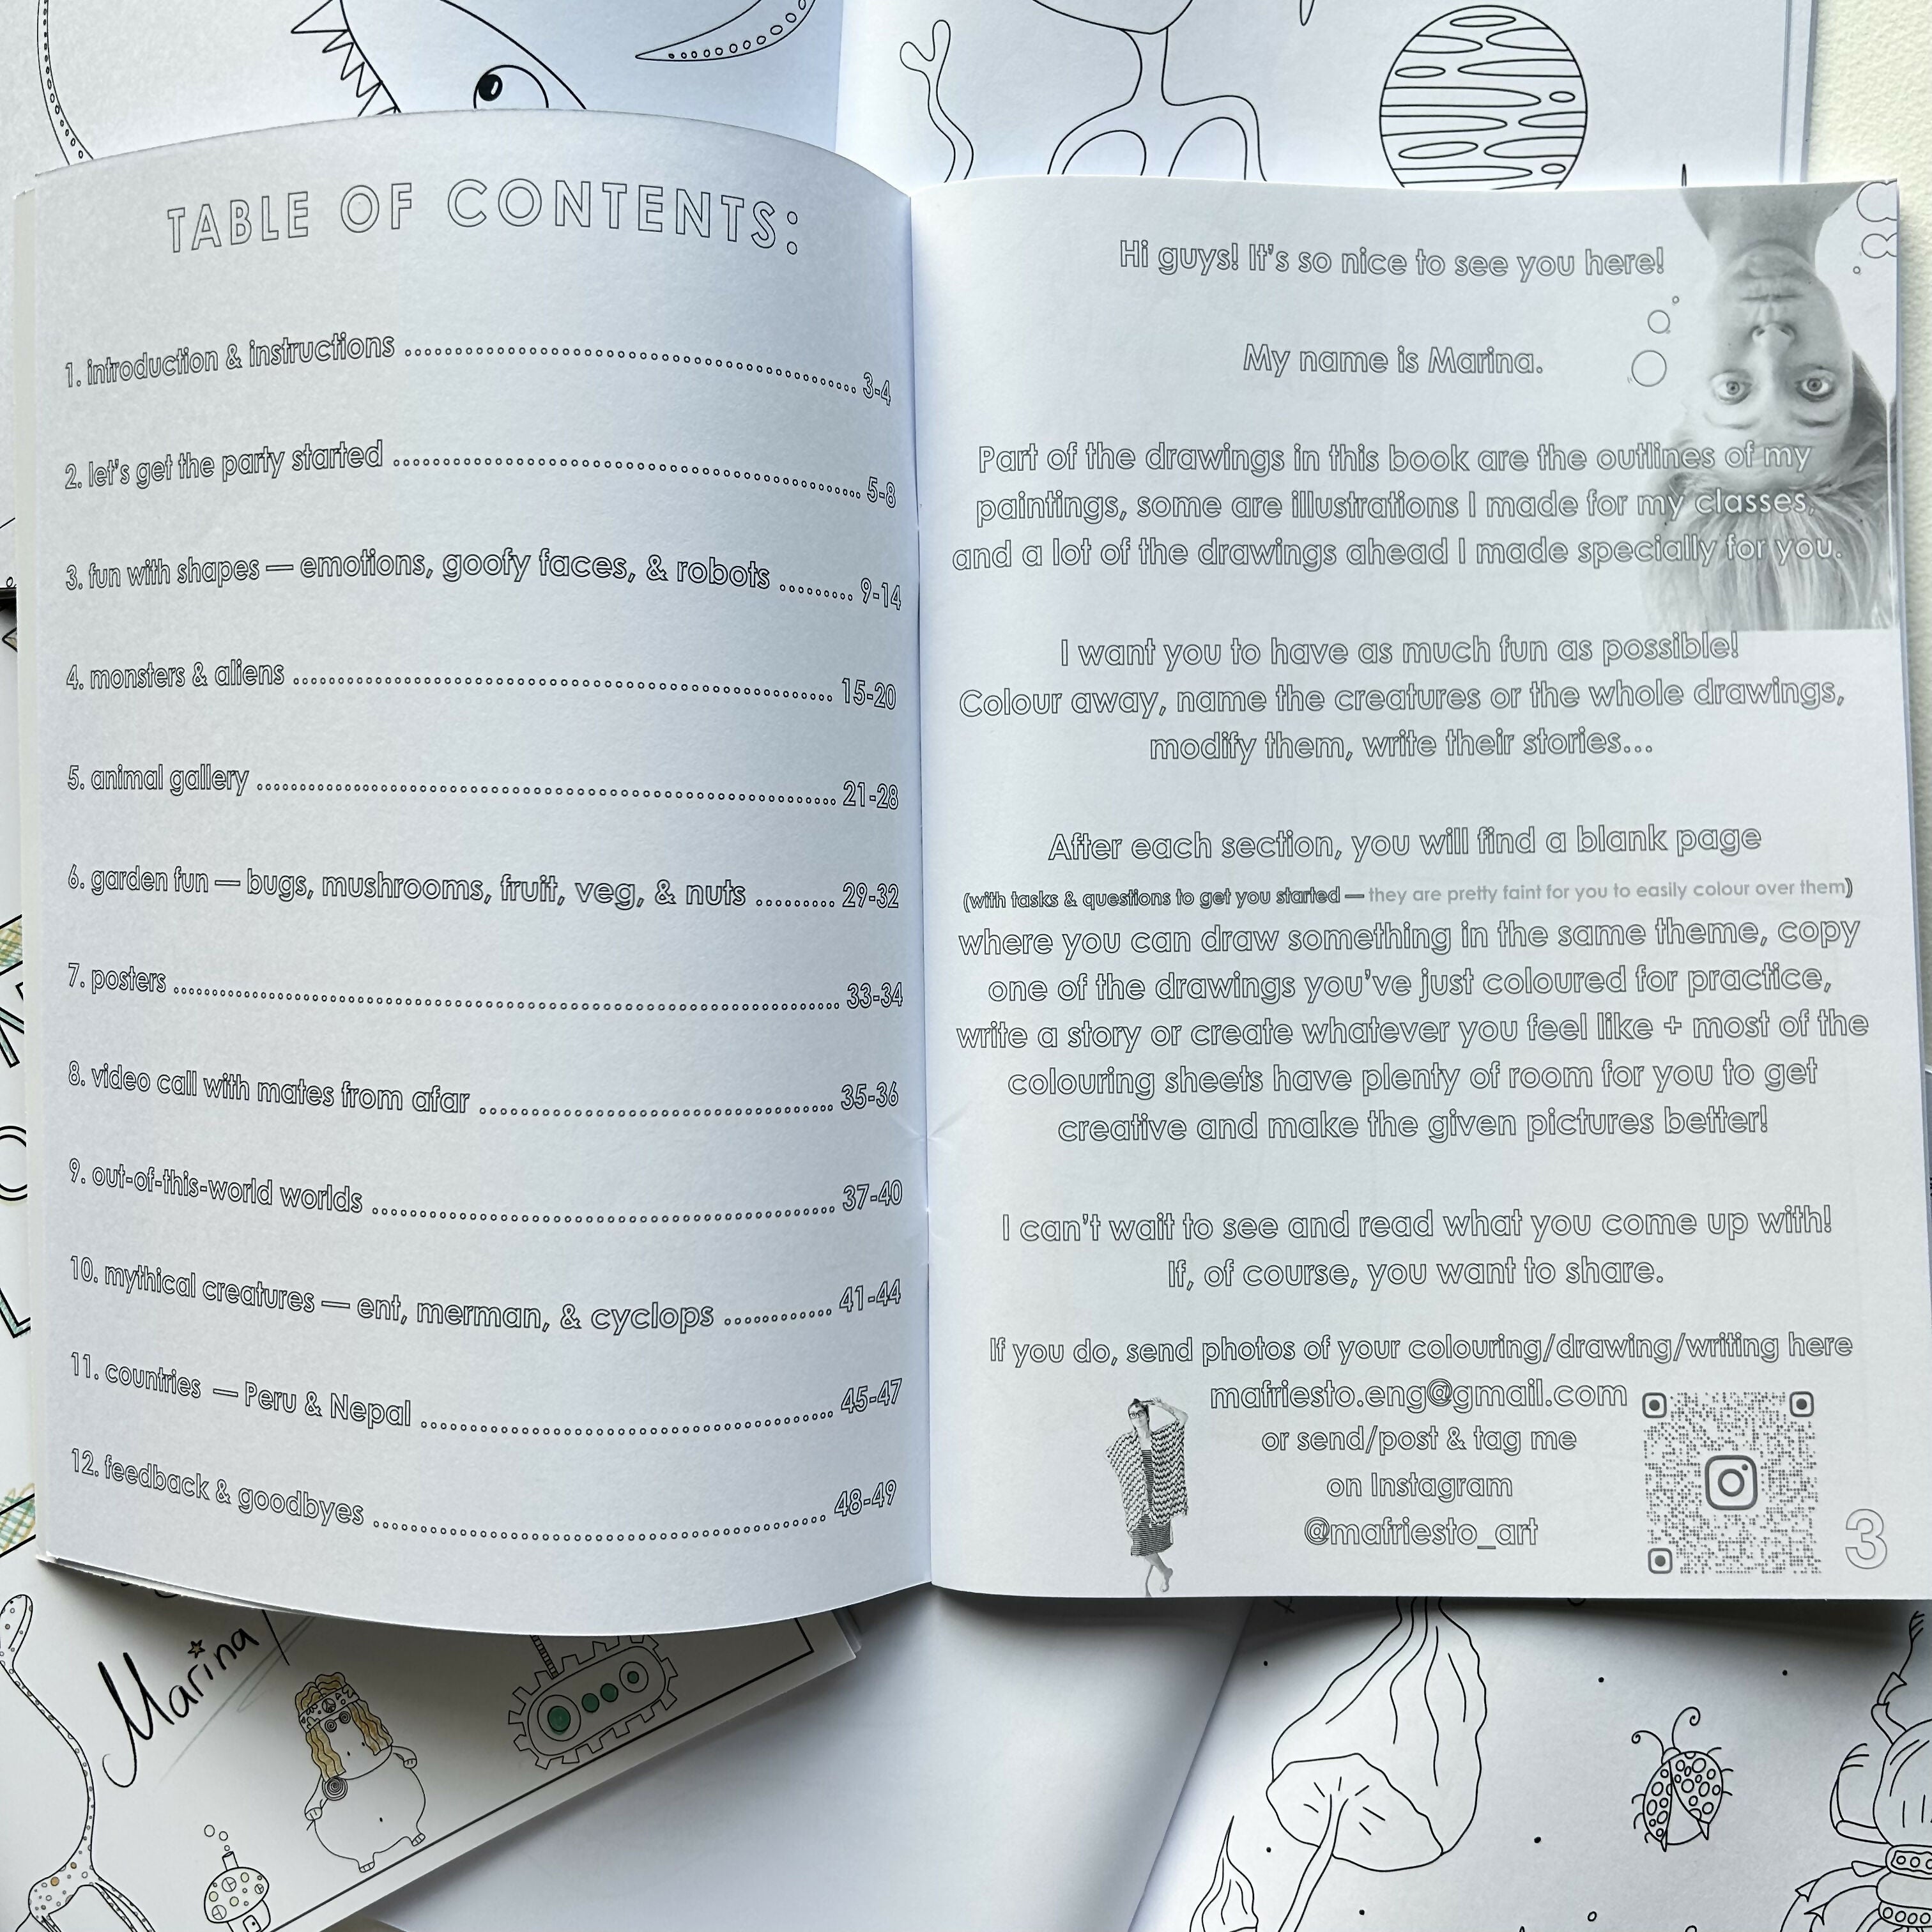 TABLE OF CONTENTS:
1. introduction & instructions .......... 3-4
2. let's get the party started .......... 5-8
3. fun with shapes — emotions, goofy faces, & robots ......... 9-14
4. monsters & aliens .......... 15-20
5. animal gallery .......... 21-28
6. garden fun — bugs, mushrooms, fruit, veg, & nuts ......... 29-32
7. posters .......... 33-34
8. video call with mates from afar .......... 35-36
9. out-of-this-world worlds .......... 37-40
10. mythical creatures — ent, merman, & cyclops ............ 41-44
11. countries — Peru & Nepal .......... 45-47
12. feedback & goodbyes .......... 48-49
Hi guys! It's so nice to see you here!
My name is Marina.
Part of the drawings in this book are the outlines of my
paintings, some are illustrations I made for my classes,
and a lot of the drawings ahead I made specially for you.
I want you to have as much fun as possible!
Colour away, name the creatures or the whole drawings,
modify them, write their stories...
After each section, you will find a blank page
(with tasks & questions to get you started — they are pretty faint for you to easily colour over them)
where you can draw something in the same theme, copy
one of the drawings you've just coloured for practice,
write a story or create whatever you feel like + most of the
colouring sheets have plenty of room for you to get
creative and make the given pictures better!
I can't wait to see and read what you come up with!
If, of course, you want to share.
If you do, send photos of your colouring/drawing/writing here
mafriesto.eng@gmail.com
or send/post & tag me
on Instagram
@mafriesto_art
3
Marina